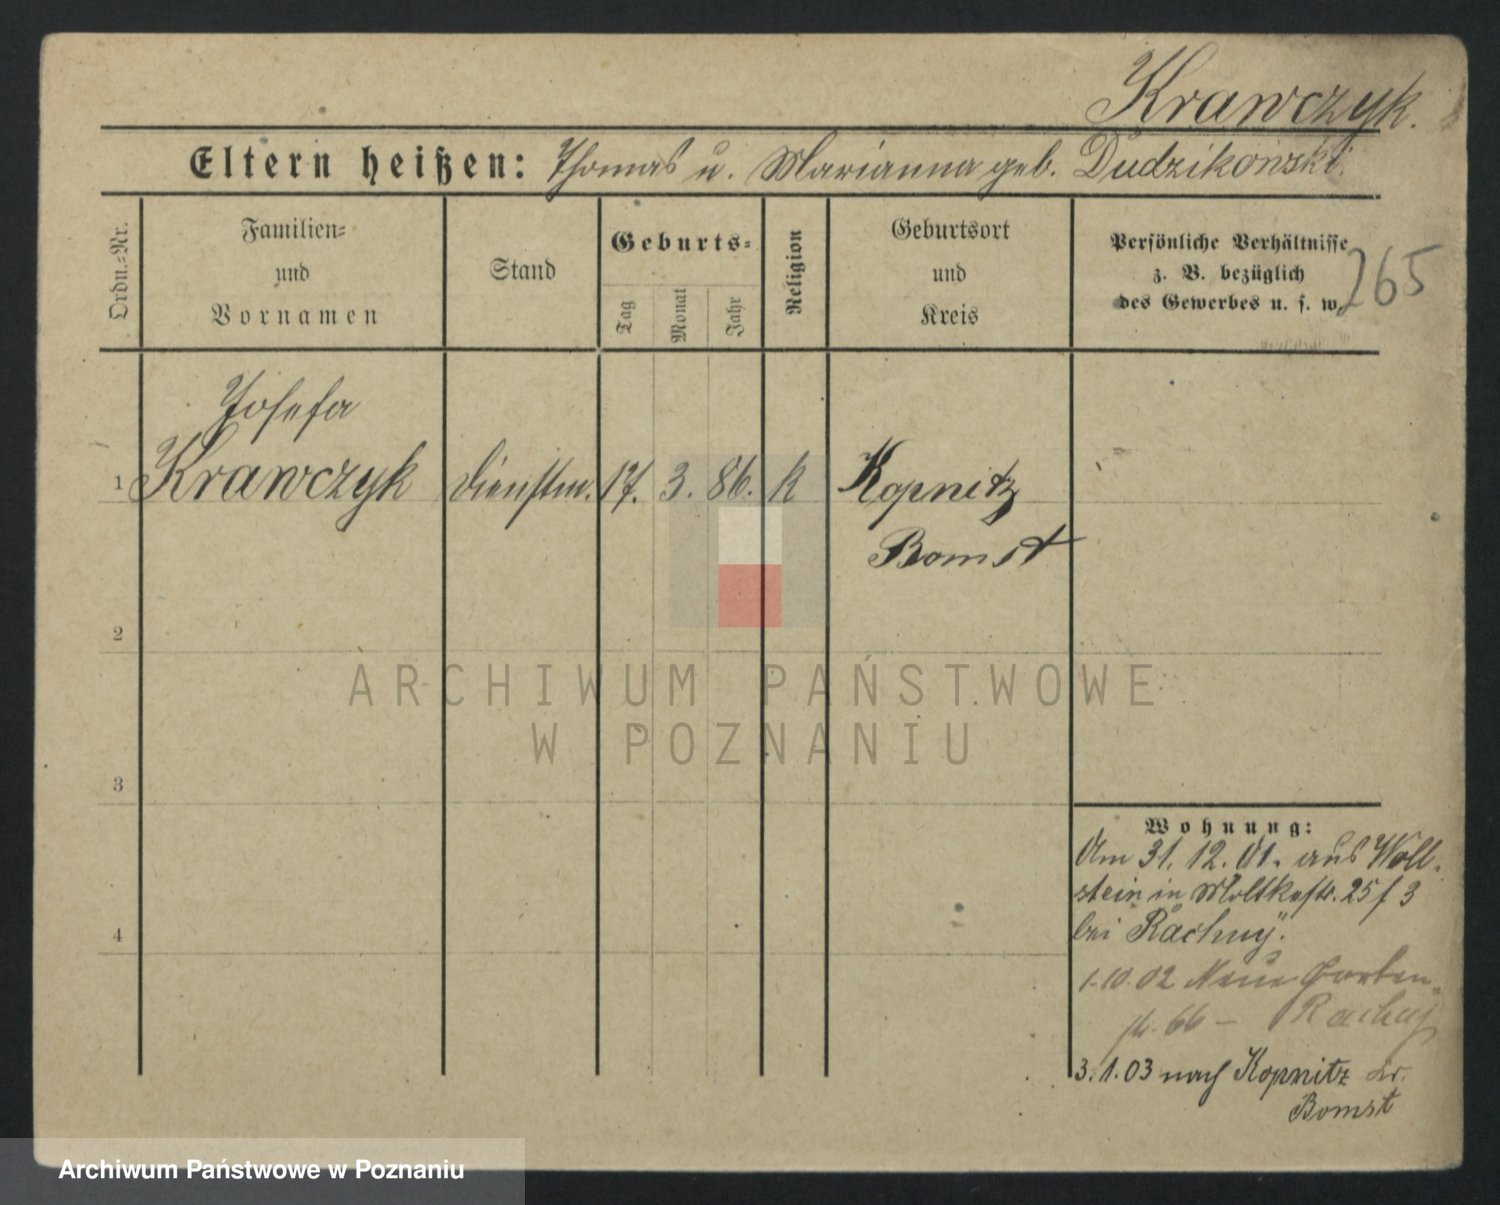 Krawczyk.
Eltern heißen: Thomas u. Marianna geb. Dudzikonski.
Ordn.=Nr.
Familien=
und
Vornamen
Stand
Geburts=
Tag
Monat
Jahr
Religion
Geburtsort
und
Kreis
Persönliche Verhältnisse
z. B. bezüglich
des Gewerbes u. s. w.
265
Josefa
1 Krawczyk Dienstm. 17. 3. 86. k Kopnitz
Bomst
2
ARCHIWUM PAŃSTWOWE
W POZNANIU
3
Wohnung:
Am 31. 12. 01. aus Woll-
stein in Moltkestr. 25 f 3
bei Rachuy.
4
1.10.02 Neue Garten-
str. 66 – Rachuj
3.1.03 nach Kopnitz Kr.
Bomst
Archiwum Państwowe w Poznaniu